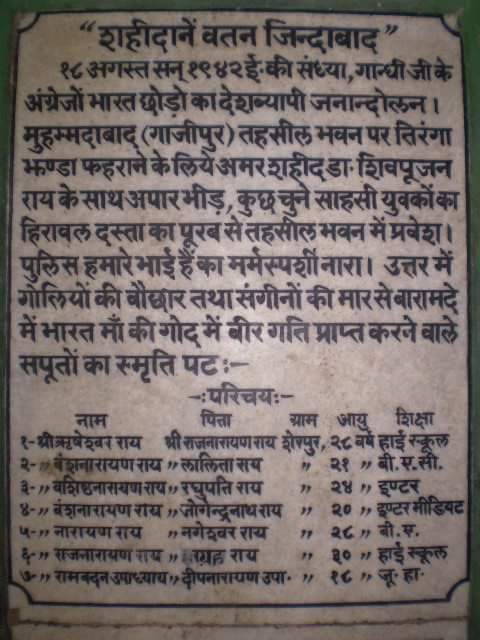 "शहीदानें वतन जिन्दाबाद"
१८ अगस्त सन् १९४२ई॰की संध्या, गान्धी जी के
अंग्रेजों भारत छोड़ो का देशव्यापी जनान्दोलन।
मुहम्मदाबाद (गाजीपुर) तहसील भवन पर तिरंगा
झण्डा फहराने के लिये अमर शहीद डा॰ शिवपूजन
राय के साथ अपार भीड़, कुछ चुने साहसी युवकों का
हिरावल दस्ता का पूरब से तहसील भवन में प्रवेश।
पुलिस हमारे भाई हैं का मर्मस्पर्शी नारा। उत्तर में
गोलियों की बौछार तथा संगीनों की मार से बारामदे
में भारत माँ की गोद में वीर गति प्राप्त करने वाले
सपूतों का स्मृति पट :-
-: परिचय :-
नाम पिता ग्राम आयु शिक्षा
१- श्री ऋषेश्वर राय श्री राजनारायण राय शेरपुर, २८ वर्ष हाई स्कूल
२- ,, वंशनारायण राय ,, ललिता राय ,, २१ ,, बी. ए. सी.
३- ,, वशिष्ठनारायण राय ,, रघुपति राय ,, २४ ,, इण्टर
४- ,, वंशनारायण राय ,, जोगेन्द्रनाथ राय ,, २० ,, इण्टर मीडियट
५- ,, नारायण राय ,, नगेश्वर राय ,, २८ ,, बी. ए.
६- ,, राजनारायण राय ,, राय ,, ३० ,, हाई स्कूल
७- ,, रामबदन उपाध्याय ,, दीपनारायण उपा॰ ,, १८ ,, जू. हा.